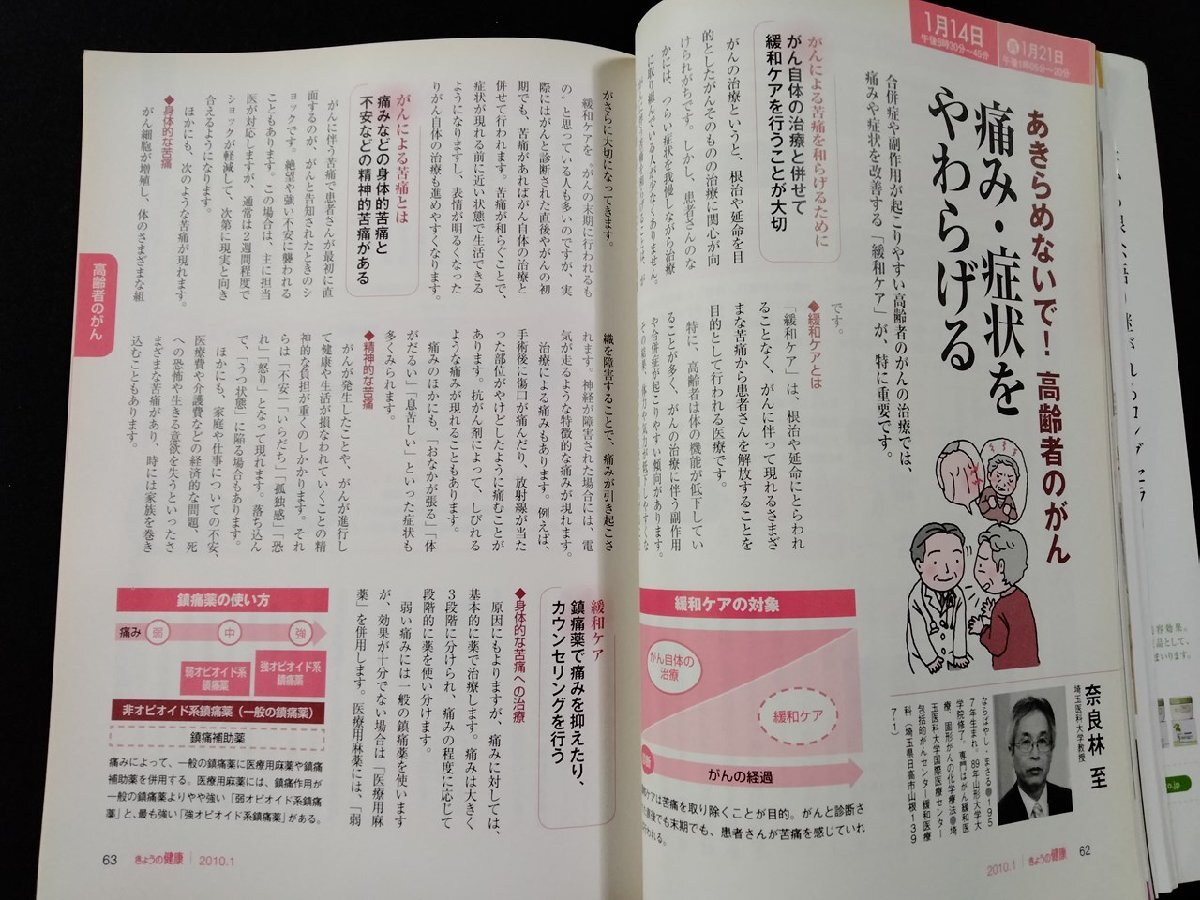 1月14日
午後8時30分〜45分
再 1月21日
午後1時05分〜20分
あきらめないで！高齢者のがん
痛み・症状を
やわらげる
合併症や副作用が起こりやすい高齢者のがんの治療では、
痛みや症状を改善する「緩和ケア」が、特に重要です。
奈良林 至
埼玉医科大学教授
ならばやし・まさる●195
7年生まれ。89年山形大学大
学院修了。専門はがん緩和医
療、固形がんの化学療法●埼
玉医科大学国際医療センター
包括的がんセンター緩和医療
科（埼玉県日高市山根139
7-1）
がんによる苦痛を和らげるために
がん自体の治療と併せて
緩和ケアを行うことが大切
がんの治療というと、根治や延命を目
的としたがんそのものの治療に関心が向
けられがちです。しかし、患者さんのな
かには、つらい症状を我慢しながら治療
に取り組んでいる人が少なくありません。
です。
◆緩和ケアとは
「緩和ケア」は、根治や延命にとらわれ
ることなく、がんに伴って現れるさまざ
まな苦痛から患者さんを解放することを
目的として行われる医療です。
特に、高齢者は体の機能が低下してい
ることが多く、がんの治療に伴う副作用
や合併症が起こりやすい傾向があります。
緩和ケアの対象
がん自体の
治療
緩和ケア
がんの経過
ケアは苦痛を取り除くことが目的。がんと診断さ
後でも末期でも、患者さんが苦痛を感じていれ
われる。
2010.1 きょうの健康 62
がさらに大切になってきます。
緩和ケアを「がんの末期に行われるも
の」と思っている人も多いのですが、実
際にはがんと診断された直後やがんの初
期でも、苦痛があればがん自体の治療と
併せて行われます。苦痛が和らぐことで、
症状が現れる前に近い状態で生活できる
ようになりますし、表情が明るくなった
りがん自体の治療も進めやすくなります。
がんによる苦痛とは
痛みなどの身体的苦痛と
不安などの精神的苦痛がある
がんに伴う苦痛で患者さんが最初に直
面するのが、がんと告知されたときのシ
ョックです。絶望や強い不安に襲われる
こともあります。この場合は、主に担当
医が対応しますが、通常は2週間程度で
ショックが軽減して、次第に現実と向き
合えるようになります。
ほかにも、次のような苦痛が現れます。
◆身体的な苦痛
がん細胞が増殖し、体のさまざまな組
高齢者のがん
織を障害することで、痛みが引き起こさ
れます。神経が障害された場合には、電
気が走るような特徴的な痛みが現れます。
治療による痛みもあります。例えば、
手術後に傷口が痛んだり、放射線が当た
った部位がやけどしたように痛むことが
あります。抗がん剤によって、しびれる
ような痛みが現れることもあります。
痛みのほかにも、「おなかが張る」「体
がだるい」「息苦しい」といった症状も
多くみられます。
◆精神的な苦痛
がんが発生したことや、がんが進行し
て健康や生活が損なわれていくことの精
神的な負担が重くのしかかります。それ
らは「不安」「いらだち」「孤独感」「恐
れ」「怒り」となって現れます。落ち込ん
で、「うつ状態」に陥る場合もあります。
ほかにも、家庭や仕事についての不安、
医療費や介護費などの経済的な問題、死
への恐怖や生きる意欲を失うといったさ
まざまな苦痛があり、時には家族を巻き
込むこともあります。
緩和ケア
鎮痛薬で痛みを抑えたり、
カウンセリングを行う
◆身体的な苦痛への治療
原因にもよりますが、痛みに対しては、
基本的に薬で治療します。痛みは大きく
3段階に分けられ、痛みの程度に応じて
段階的に薬を使い分けます。
弱い痛みには一般の鎮痛薬を使います
が、効果が十分でない場合は「医療用麻
薬」を併用します。医療用麻薬には、「弱
鎮痛薬の使い方
痛み 弱 中 強
弱オピオイド系
鎮痛薬
強オピオイド系
鎮痛薬
非オピオイド系鎮痛薬（一般の鎮痛薬）
鎮痛補助薬
痛みによって、一般の鎮痛薬に医療用麻薬や鎮痛
補助薬を併用する。医療用麻薬には、鎮痛作用が
一般の鎮痛薬よりやや強い「弱オピオイド系鎮痛
薬」と、最も強い「強オピオイド系鎮痛薬」がある。
63 きょうの健康 2010.1